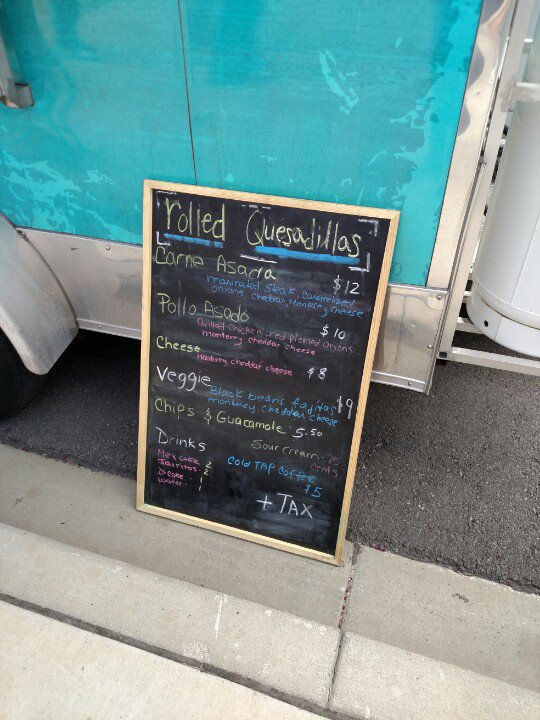 rolled Quesadillas
Carne Asada
$12
marinated steak, caramelized
onions, cheddar, Monterey cheese
Pollo Asado
$10
Grilled chicken, red pickled onions,
monterey cheddar cheese
Cheese
Monterey cheddar cheese $8
Veggie
$9
Black beans, fajitas
monterey, cheddar cheese
Chips & Guacamole. 5.50
Sour cream. 75
cents
Drinks
Mex Coke 2
Jarritos. 2
D. Coke . 1
Water . 1
Cold TOP Coffee
$5
+ TAX